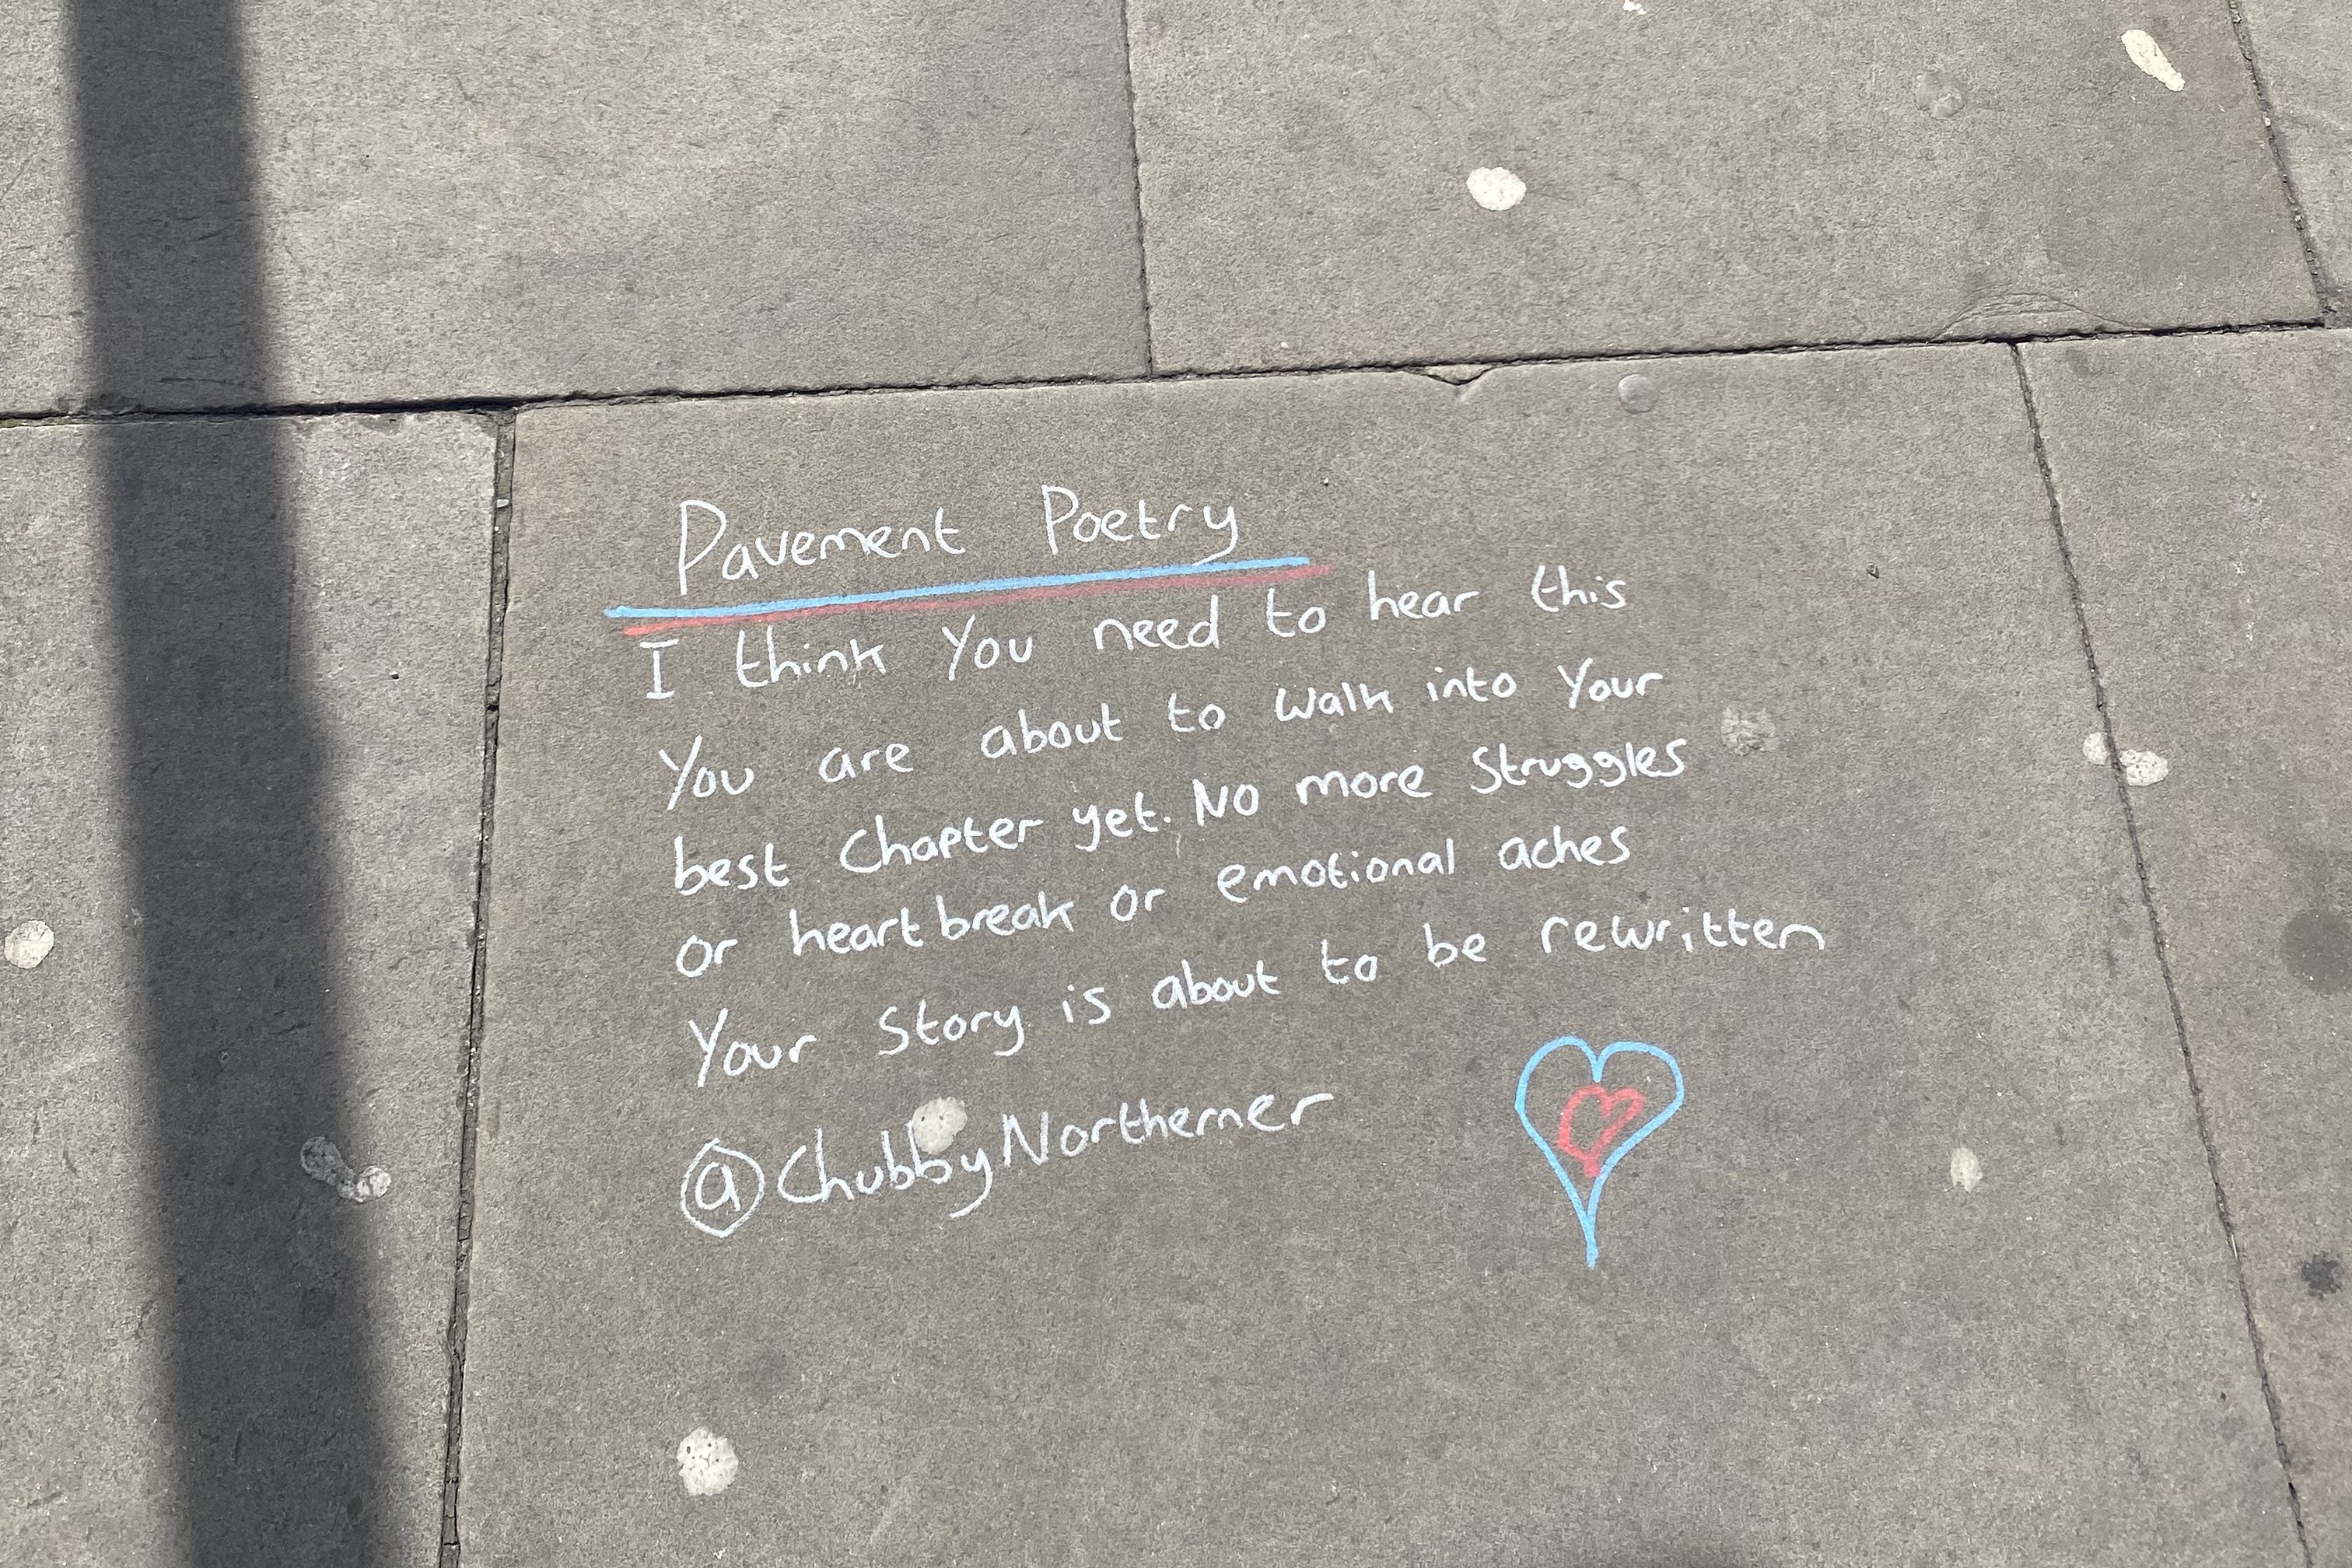 Pavement Poetry
I think You need to hear this
You are about to walk into Your
best Chapter yet. No more Struggles
or heartbreak or emotional aches
Your Story is about to be rewritten
@ChubbyNortherner